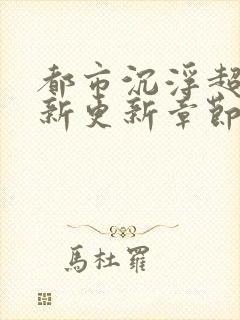 都市沉浮超
新更新章節
馬杜羅